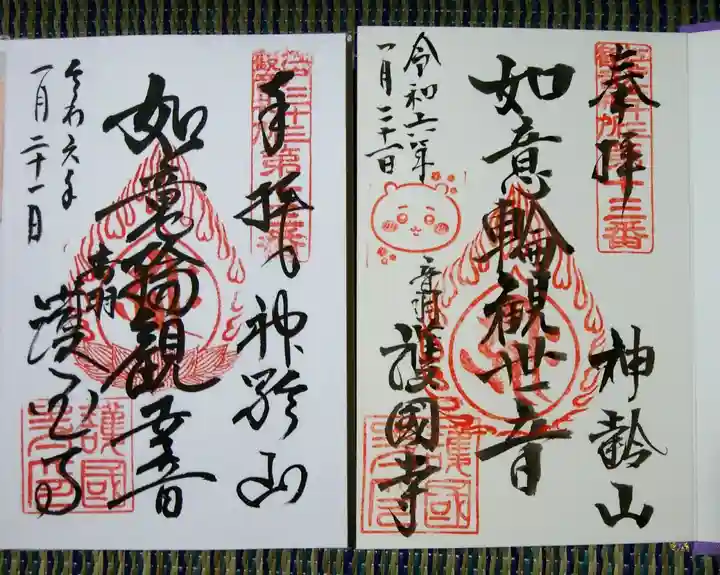 奉拝
神齢山
如意輪観世音
音羽
護国寺
令和六年
一月二十一日
護國
奉拝
神齢山
如意輪観世音
音羽
護國寺
令和六年
一月二十一日
三番
護國